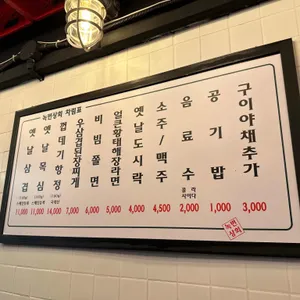 녹번상회 차림표
옛날삼겹
11,000
옛날목심
11,000
14,000
우삼겹된장찌게
7,000
비빔쫄면
6,000
얼큰황태해장라면
5,000
옛날도시락
4,000
소주/맥주
4,500
음료수
콜라
사이다
2,000
공기밥
1,000
구이야채추가
3,000
녹번
상회